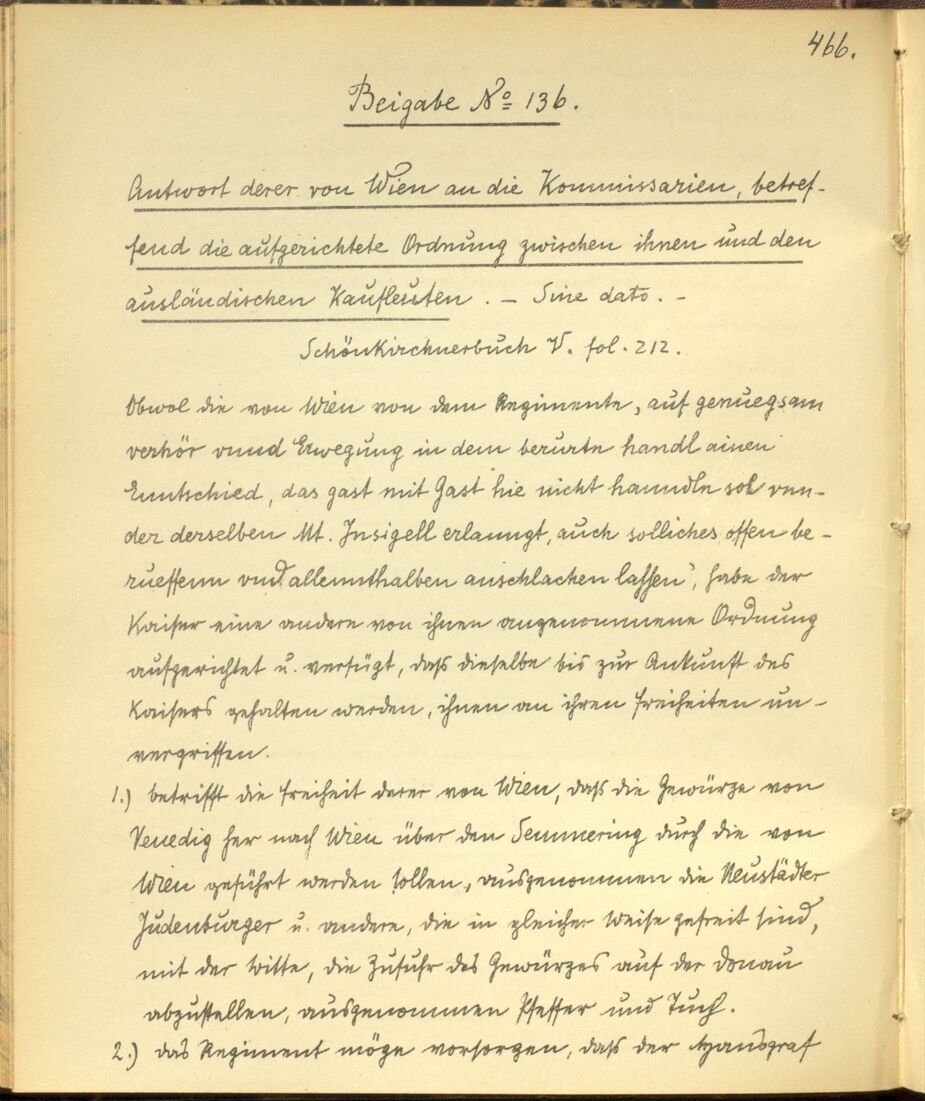 466.
Beigabe No 136.
Antwort derer von Wien an die Kommissarien, betref-
fend die aufgerichtete Ordnung zwischen ihnen und den
ausländischen Kaufleuten. – Sine dato. –
Schönkirchnerbuch V. fol. 212.
Obwol die von Wien von dem Regimente „auf genuegsam
verhör vnnd Erwegung in dem berurtn handl ainen
Enntschied, das gast mit Gast hie nicht hanndln sol vnn-
der derselben Mt. Insigell erlanngt, auch solliches offen be-
rueffenn vnd allennthalben anschlachen lassen“, habe der
Kaiser eine andere von ihnen angenommene Ordnung
aufgerichtet u. verfügt, daß dieselbe bis zur Ankunft des
Kaisers gehalten werden, ihnen an ihren Freiheiten un-
vergriffen.
1.) betrifft die Freiheit derer von Wien, daß die Gewürze von
Venedig her nach Wien über den Semmering durch die von
Wien geführt werden sollen, ausgenommen die Neustädter
Judenburger u. andere, die in gleicher Weise gefreit sind,
mit der Bitte, die Zufuhr des Gewürzes auf der Donau
abzustellen, ausgenommen Pfeffer und Tuch.
2.) das Regiment möge vorsorgen, daß der Hansgraf